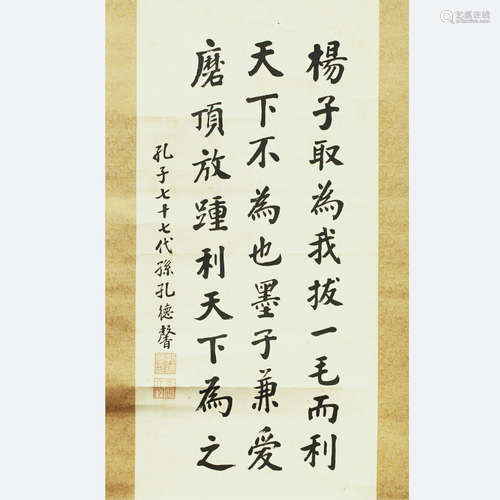 楊子取為我拔一毛而利
天下不為也墨子兼愛
磨頂放踵利天下為之
孔子七十七代孫孔德馨